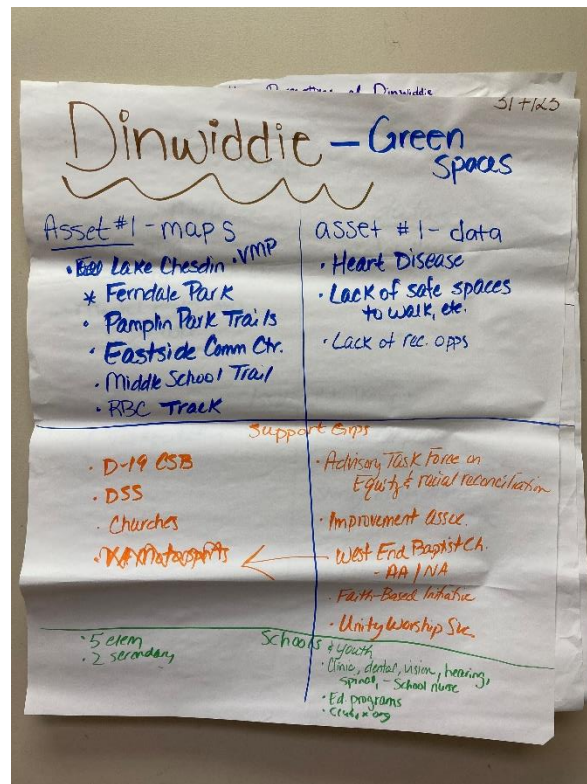 of Dinwiddie
Dinwiddie – Green
spaces
Asset #1 - maps
• Lake Chesdin • VMP
* Ferndale Park
• Pamplin Park Trails
• Eastside Comm Ctr.
• Middle School Trail
• RBC Track
asset #1 - data
• Heart Disease
• Lack of safe spaces
to walk, etc.
• Lack of rec. opps
Support Grps
• D-19 CSB
• DSS
• Churches
• Advisory Task Force on
Equity & racial reconciliation
• Improvement assoc.
• West End Baptist Ch.
- AA / NA
• Faith-Based Initiative
• Unity Worship Svc
Schools & youth
• 5 elem
• 2 secondary
• Clinic, dental, vision, hearing,
spinal, - School nurse
• Ed. programs